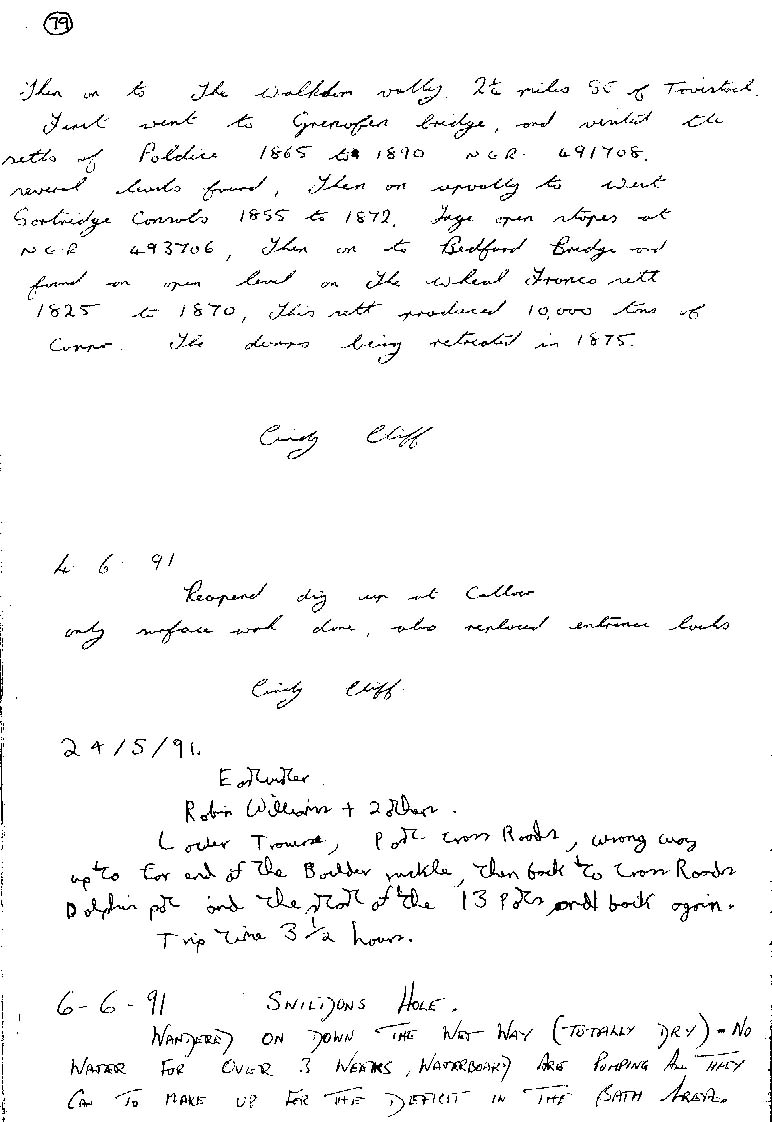 79
Then on to The Walkdon vally. 2½ miles SE of Tavistock.
First went to Grenofen bridge, and visited the
setts of Poldice 1865 to 1890 N G R. 491708.
several levels found, Then on upvally to West
Sortridge Consols 1855 to 1872. Large open stopes at
N G R 493706, Then on to Bedford Bridge and
found an open level on The wheal Franco sett
1825 to 1870, This sett produced 10,000 tons of
The dumps being retreated in 1875.
Cindy Cliff
4 6 91
Reopend dig up at Callow
only surface work done, also replaced entrance locks
Cindy Cliff.
24/5/91.
Eastwater.
Robin Williams + 2 others.
Lower Traverse, Post Cross Roads, wrong way
up to far end of The Boulder ruckle, Then back to Cross Roads
Dolphin pot and The start of the 13 Pots, and back again.
Trip Time 3½ hours.
6-6-91 SWILDONS HOLE.
WANDERED ON DOWN THE WET WAY (TOTALLY DRY) - NO
WATER FOR OVER 3 WEEKS, WATERBOARD ARE PUMPING ALL THEY
CAN TO MAKE UP FOR THE DEFICIT IN THE BATH AREA.